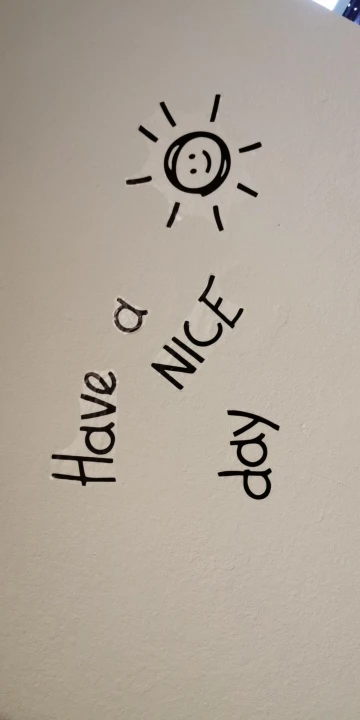 Have a
NICE
day